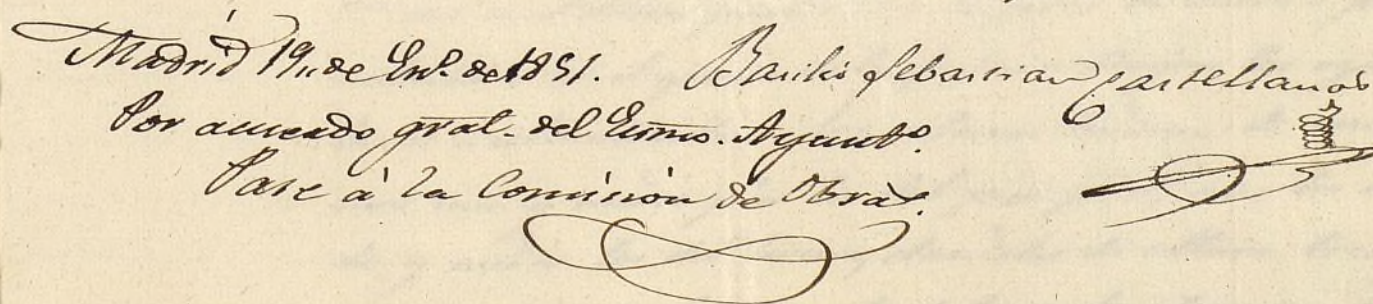 Madrid 19,, de En.º de 1851.
Basilio Sebastian Castellanos
Por acuerdo gral. del Exmo. Ayunt.º
Pase à la Comision de Obras.